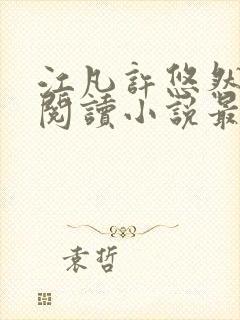 江凡許悠然
閱讀小說最
袁哲